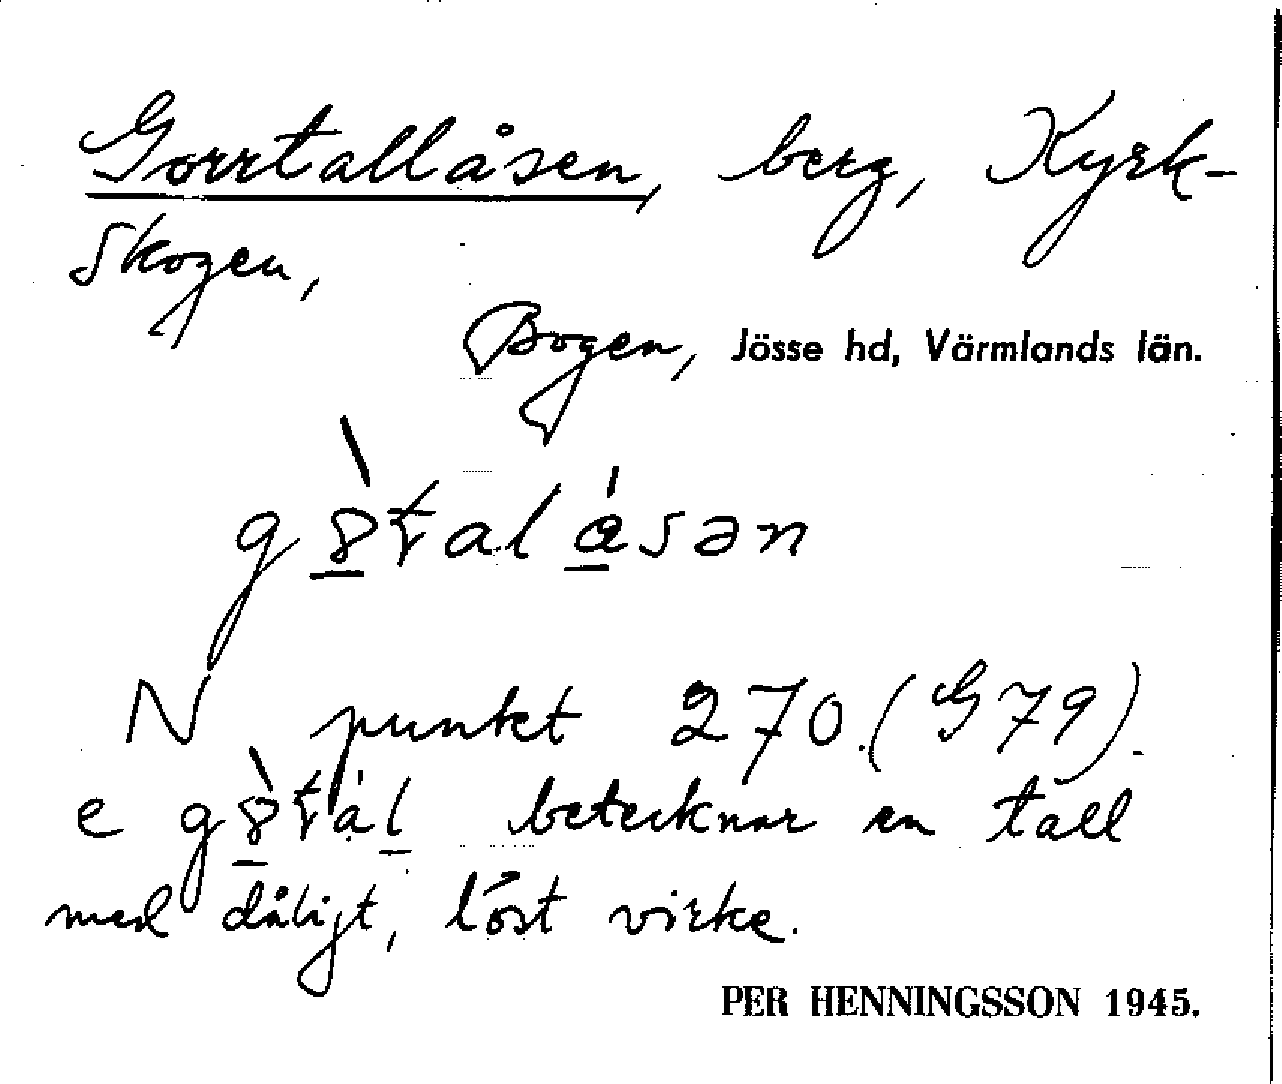 Gorrtallåsen, berg, Kyrk-
skogen,
Bogen, Jösse hd, Värmlands län.
N punkt 270. (G79).
e betecknar en tall
med dåligt, löst virke.
PER HENNINGSSON 1945.